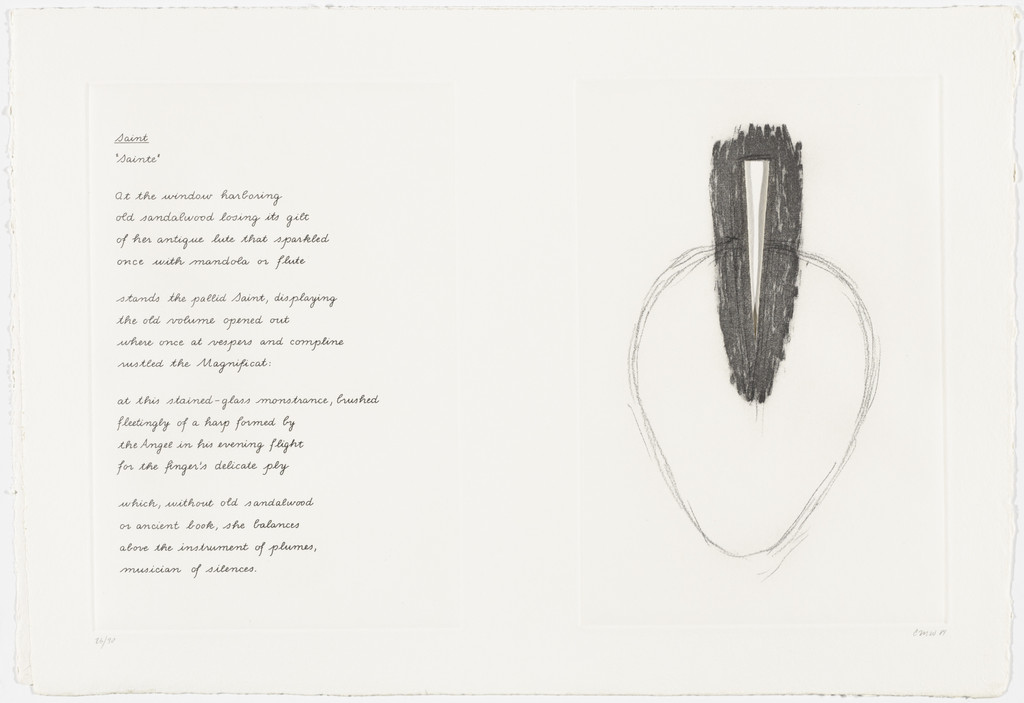 Saint
"Sainte"
At the window harboring
old sandalwood losing its gilt
of her antique lute that sparkled
once with mandola or flute
stands the pallid Saint, displaying
the old volume opened out
where once at vespers and compline
rustled the Magnificat:
at this stained-glass monstrance, brushed
fleetingly of a harp formed by
the Angel in his evening flight
for the finger's delicate ply
which, without old sandalwood
or ancient book, she balances
above the instrument of plumes,
musician of silences.